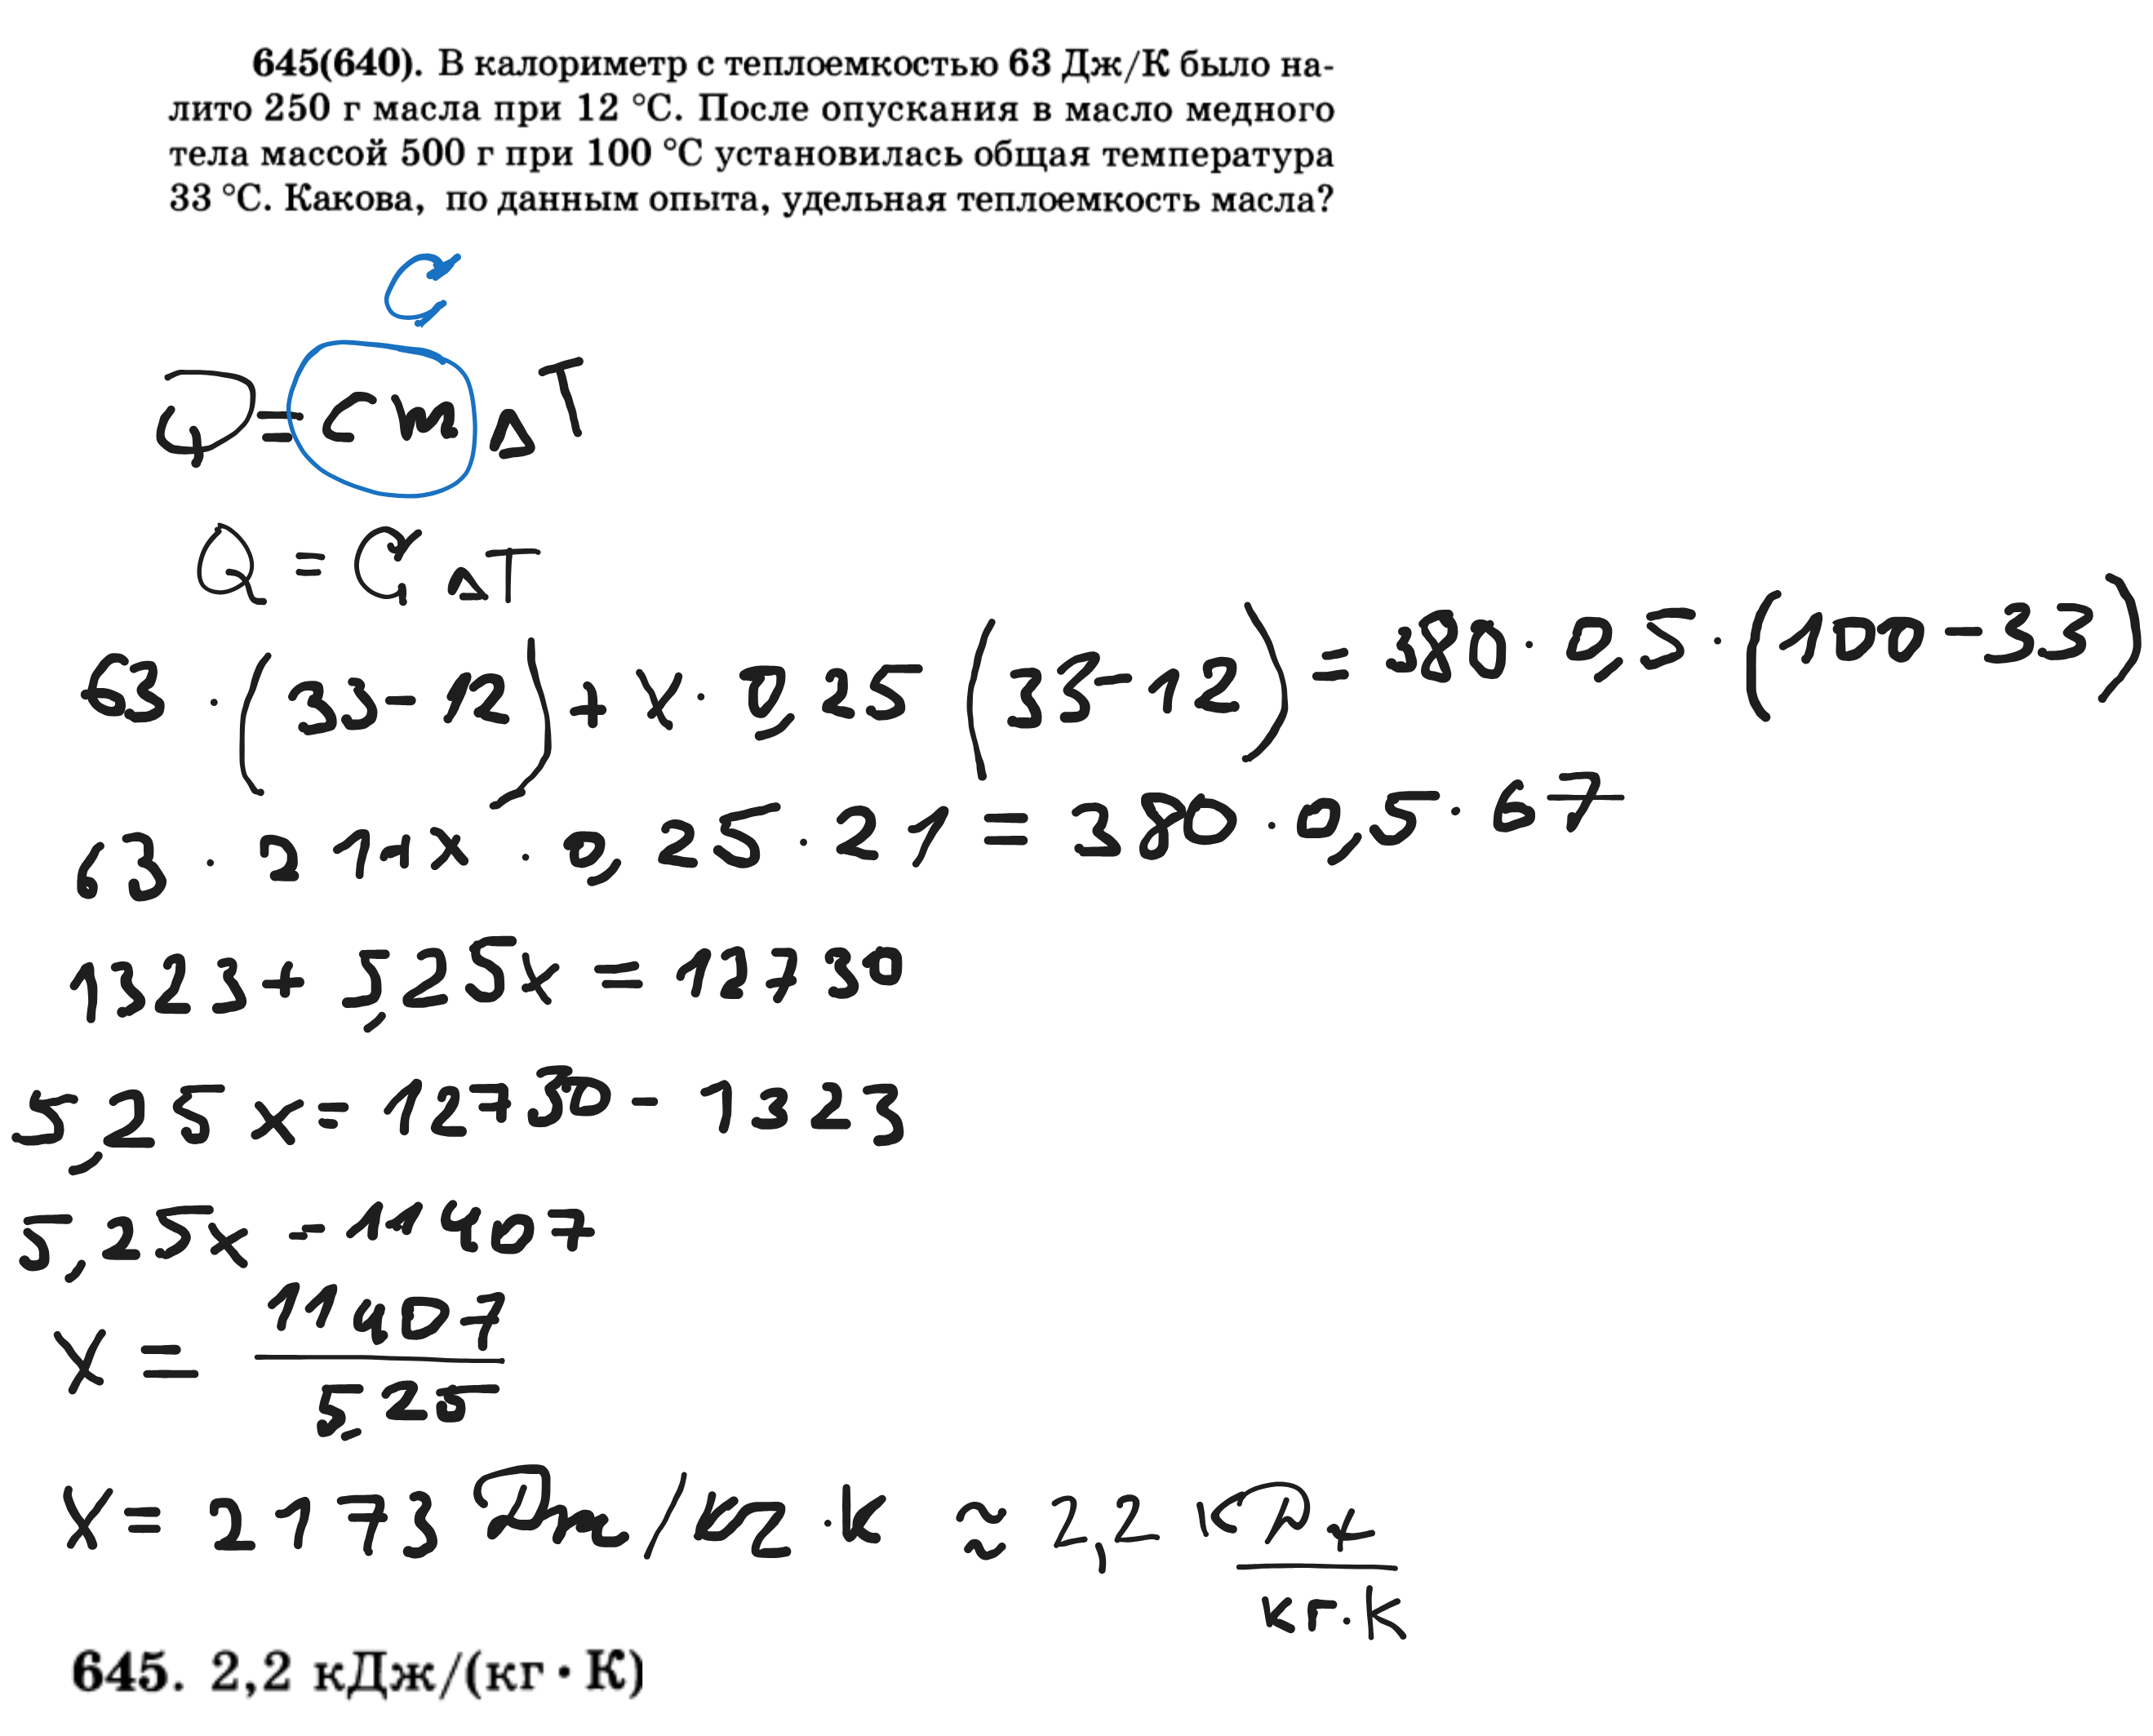 645(640). В калориметр с теплоемкостью 63 Дж/К было на-
лито 250 г масла при 12 °С. После опускания в масло медного
тела массой 500 г при 100 °С установилась общая температура
33 °С. Какова, по данным опыта, удельная теплоемкость масла?
C
Q = cm ΔT
Q = C ΔT
63 · (33-12) + x · 0,25 (33-12) = 380 · 0,5 · (100-33)
63 · 21+x · 0,25 · 21 = 380 · 0,5 · 67
1323 + 5,25x = 12730
5,25x = 12730 - 1323
5,25x = 11407
x = 11407
5,25
x = 2173 Дж/кг · К ≈ 2,2 кДж
кг·К
645. 2,2 кДж/(кг · К)